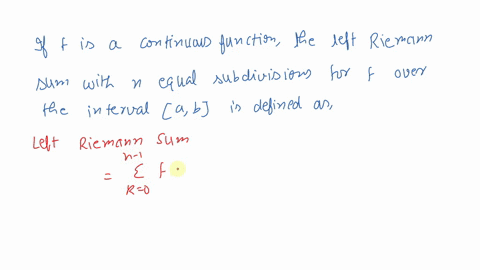 If f is a continuous function, the left Riemann
sum with n equal subdivisions for f over
the interval [a,b] is defined as,
Left Riemann sum
n-1
= Σ f
K=0